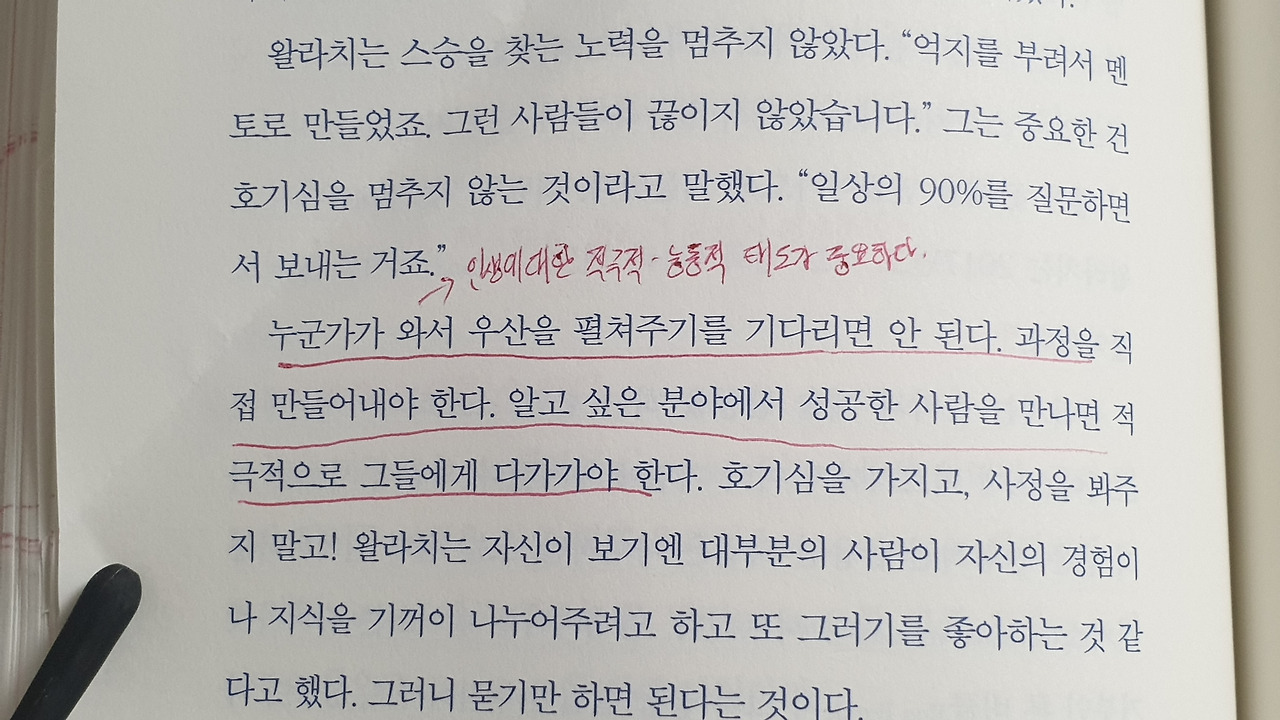 왈라치는 스승을 찾는 노력을 멈추지 않았다. “억지를 부려서 멘
토로 만들었죠. 그런 사람들이 끊이지 않았습니다.” 그는 중요한 건
호기심을 멈추지 않는 것이라고 말했다. “일상의 90%를 질문하면
서 보내는 거죠.”
인생에대한 적극적·능동적 태도가 중요하다.
누군가가 와서 우산을 펼쳐주기를 기다리면 안 된다. 과정을 직
접 만들어내야 한다. 알고 싶은 분야에서 성공한 사람을 만나면 적
극적으로 그들에게 다가가야 한다. 호기심을 가지고, 사정을 봐주
지 말고! 왈라치는 자신이 보기엔 대부분의 사람이 자신의 경험이
나 지식을 기꺼이 나누어주려고 하고 또 그러기를 좋아하는 것 같
다고 했다. 그러니 묻기만 하면 된다는 것이다.